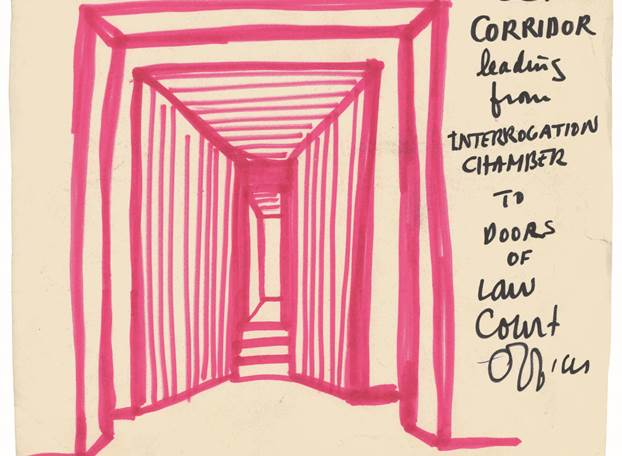 CORRIDOR
leading
from
INTERROGATION
CHAMBER
TO
DOORS
OF
LAW
Court
Offices